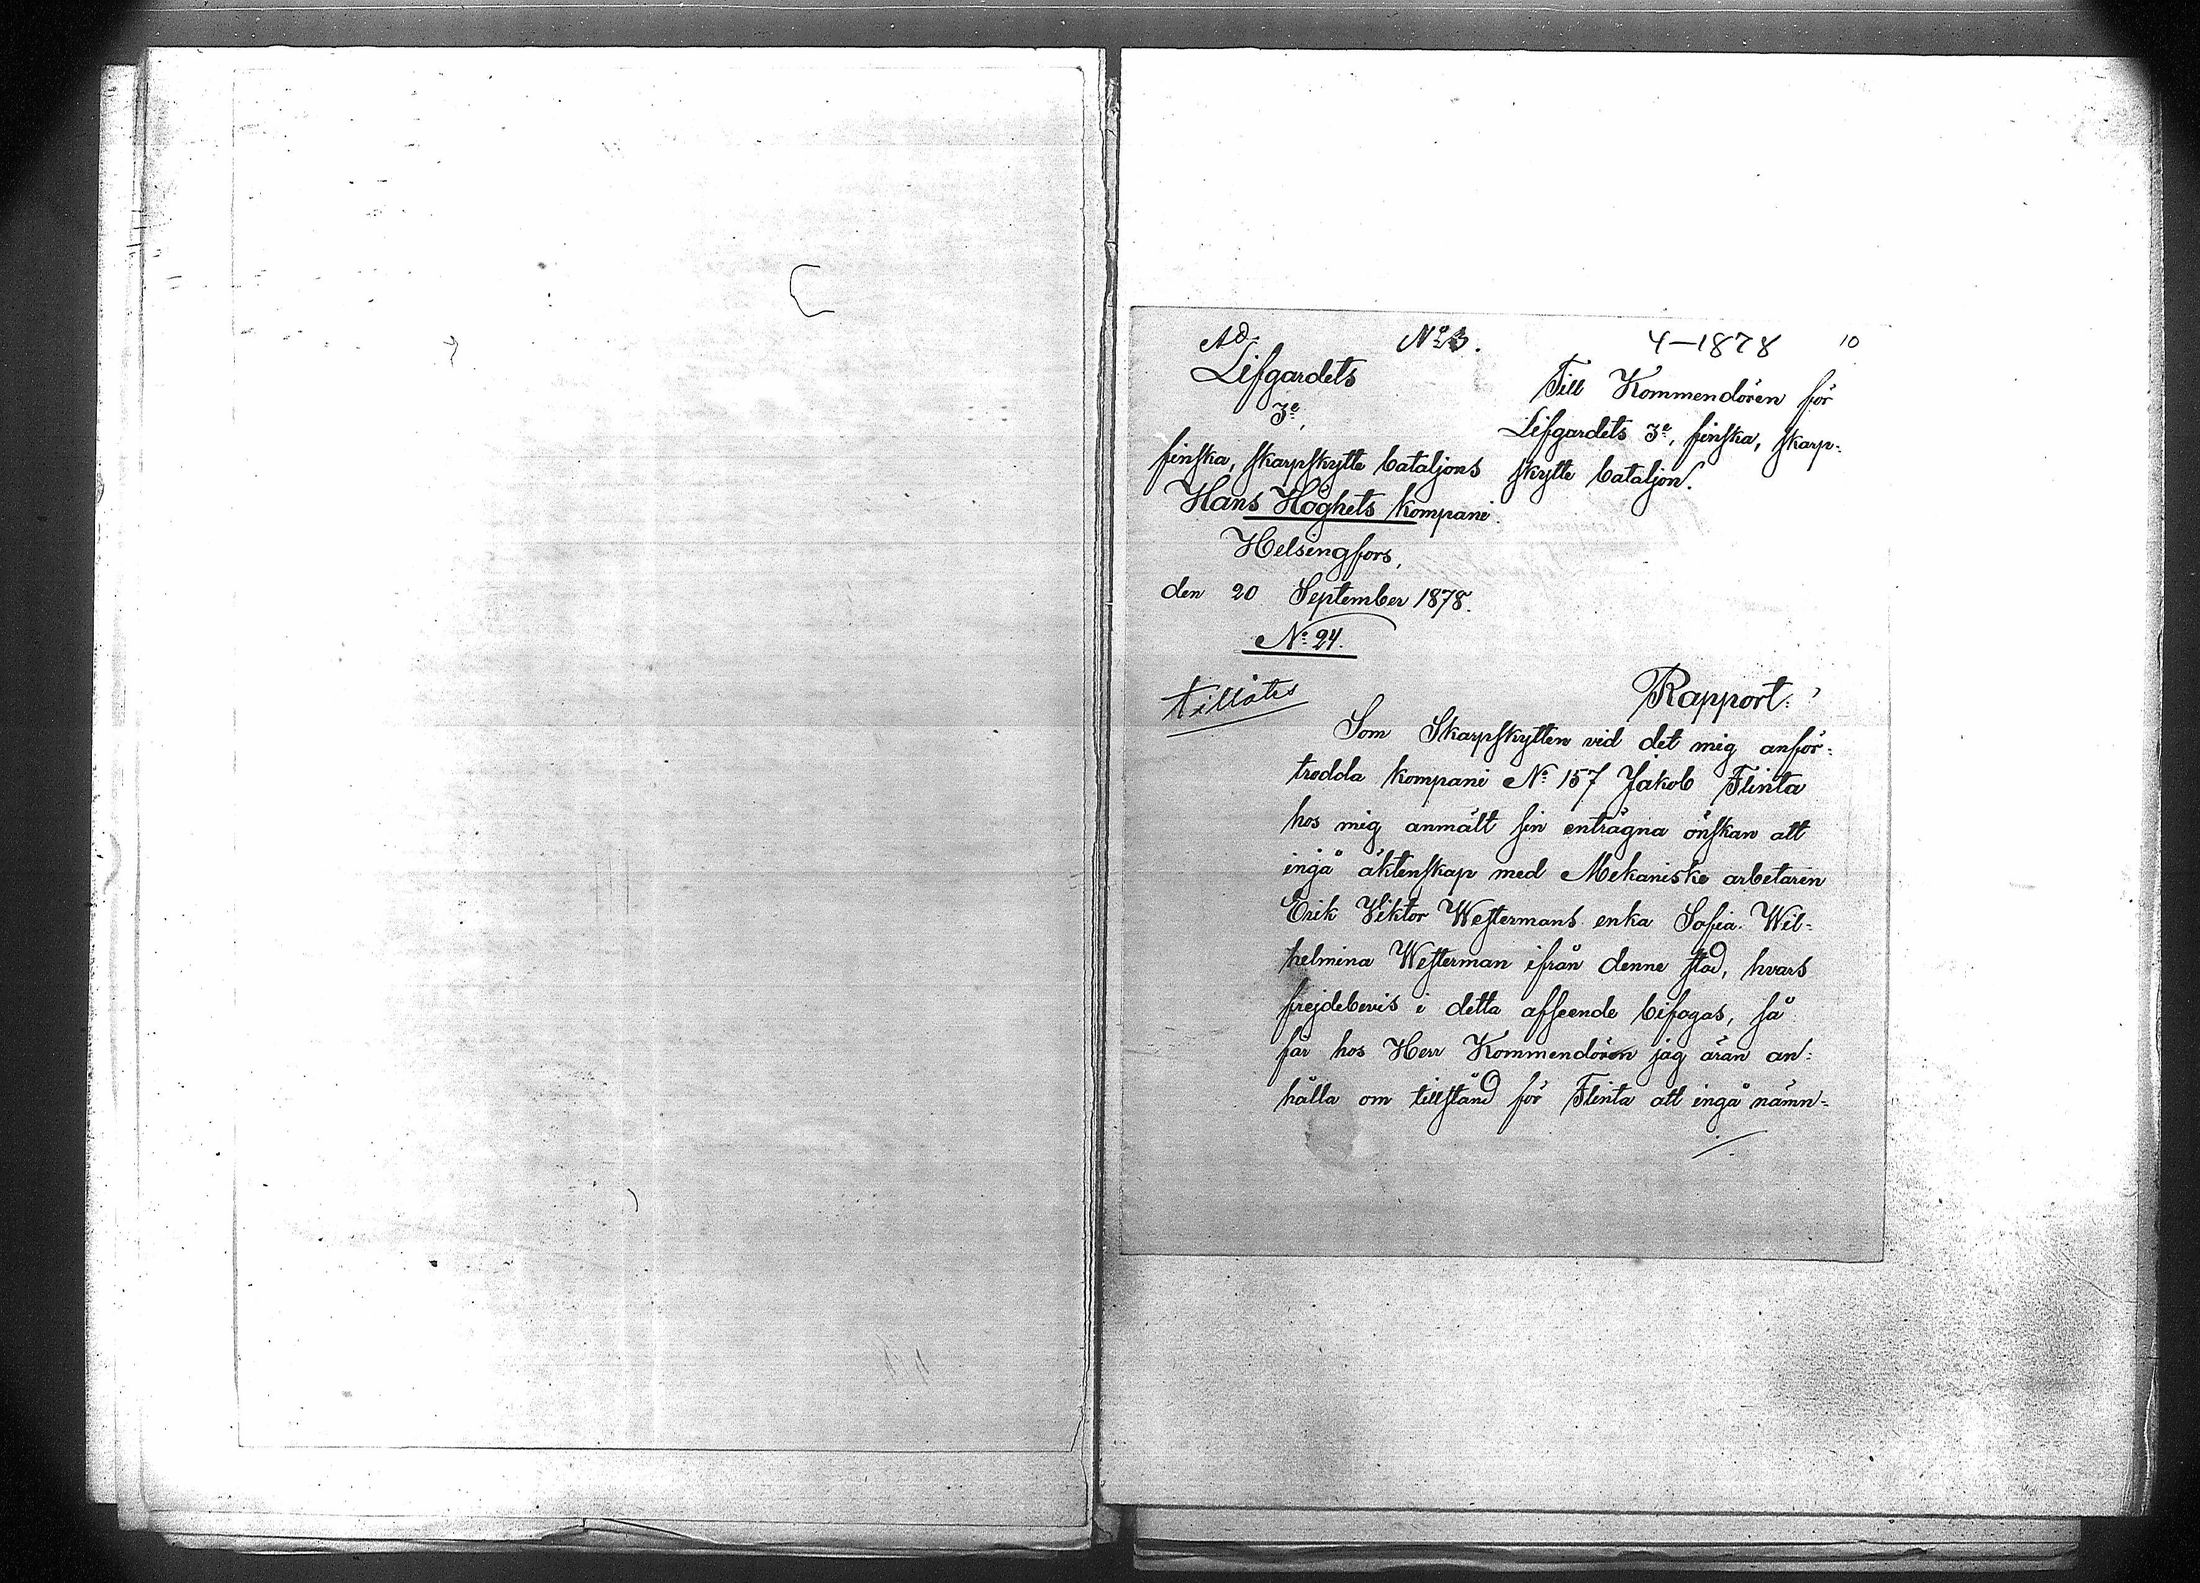 Ad. No 3. 4-1878 10
Lifgardets
3e,
finska, skarpskytte bataljons
Hans Höghets kompani.
Helsingfors,
den 20 September 1878.
No 24.
Till Kommendören för
Lifgardets 3e, finska, skarp-
skytte bataljon.
tillåtes
Rapport:
Som Skarpskytten vid det mig anför-
trodda kompani No 157 Jakob Flinta
hos mig anmält sin enträgna önskan att
ingå äktenskap med Mekaniske arbetaren
Erik Viktor Westermans enka Sofia Wil-
helmina Westerman ifrån denne stad, hvars
frejdebevis i detta afseende bifogas, så
får hos Herr Kommendören jag äran an-
hålla om tillstånd för Flinta att ingå nämn-
./.